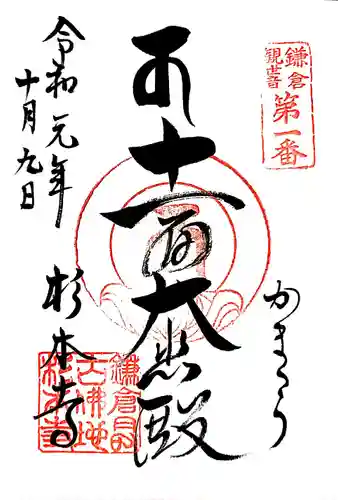 鎌倉
観世音
第一番
かまくら
十一面大悲殿
令和元年
十月九日
杉本寺
鎌倉最
古佛地
杉本寺